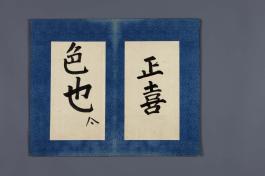 正喜
色也